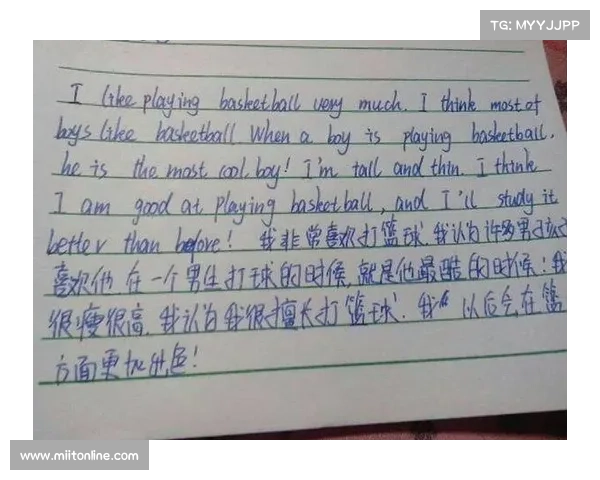 TG: MYYJJPP
I like playing basketball very much. I think most of
boys like basketball. When a boy is playing basketball,
he is the most cool boy! I'm tall and thin. I think
I am good at playing basketball, and I'll study it
better than before! 我非常喜欢打篮球.我认为许多男孩
喜欢他 在一个男生打球的时候,就是他最酷的时候!我
很瘦很高.我认为我很擅长打篮球.我 以后会在篮
方面更加出色!
www.miitonline.com